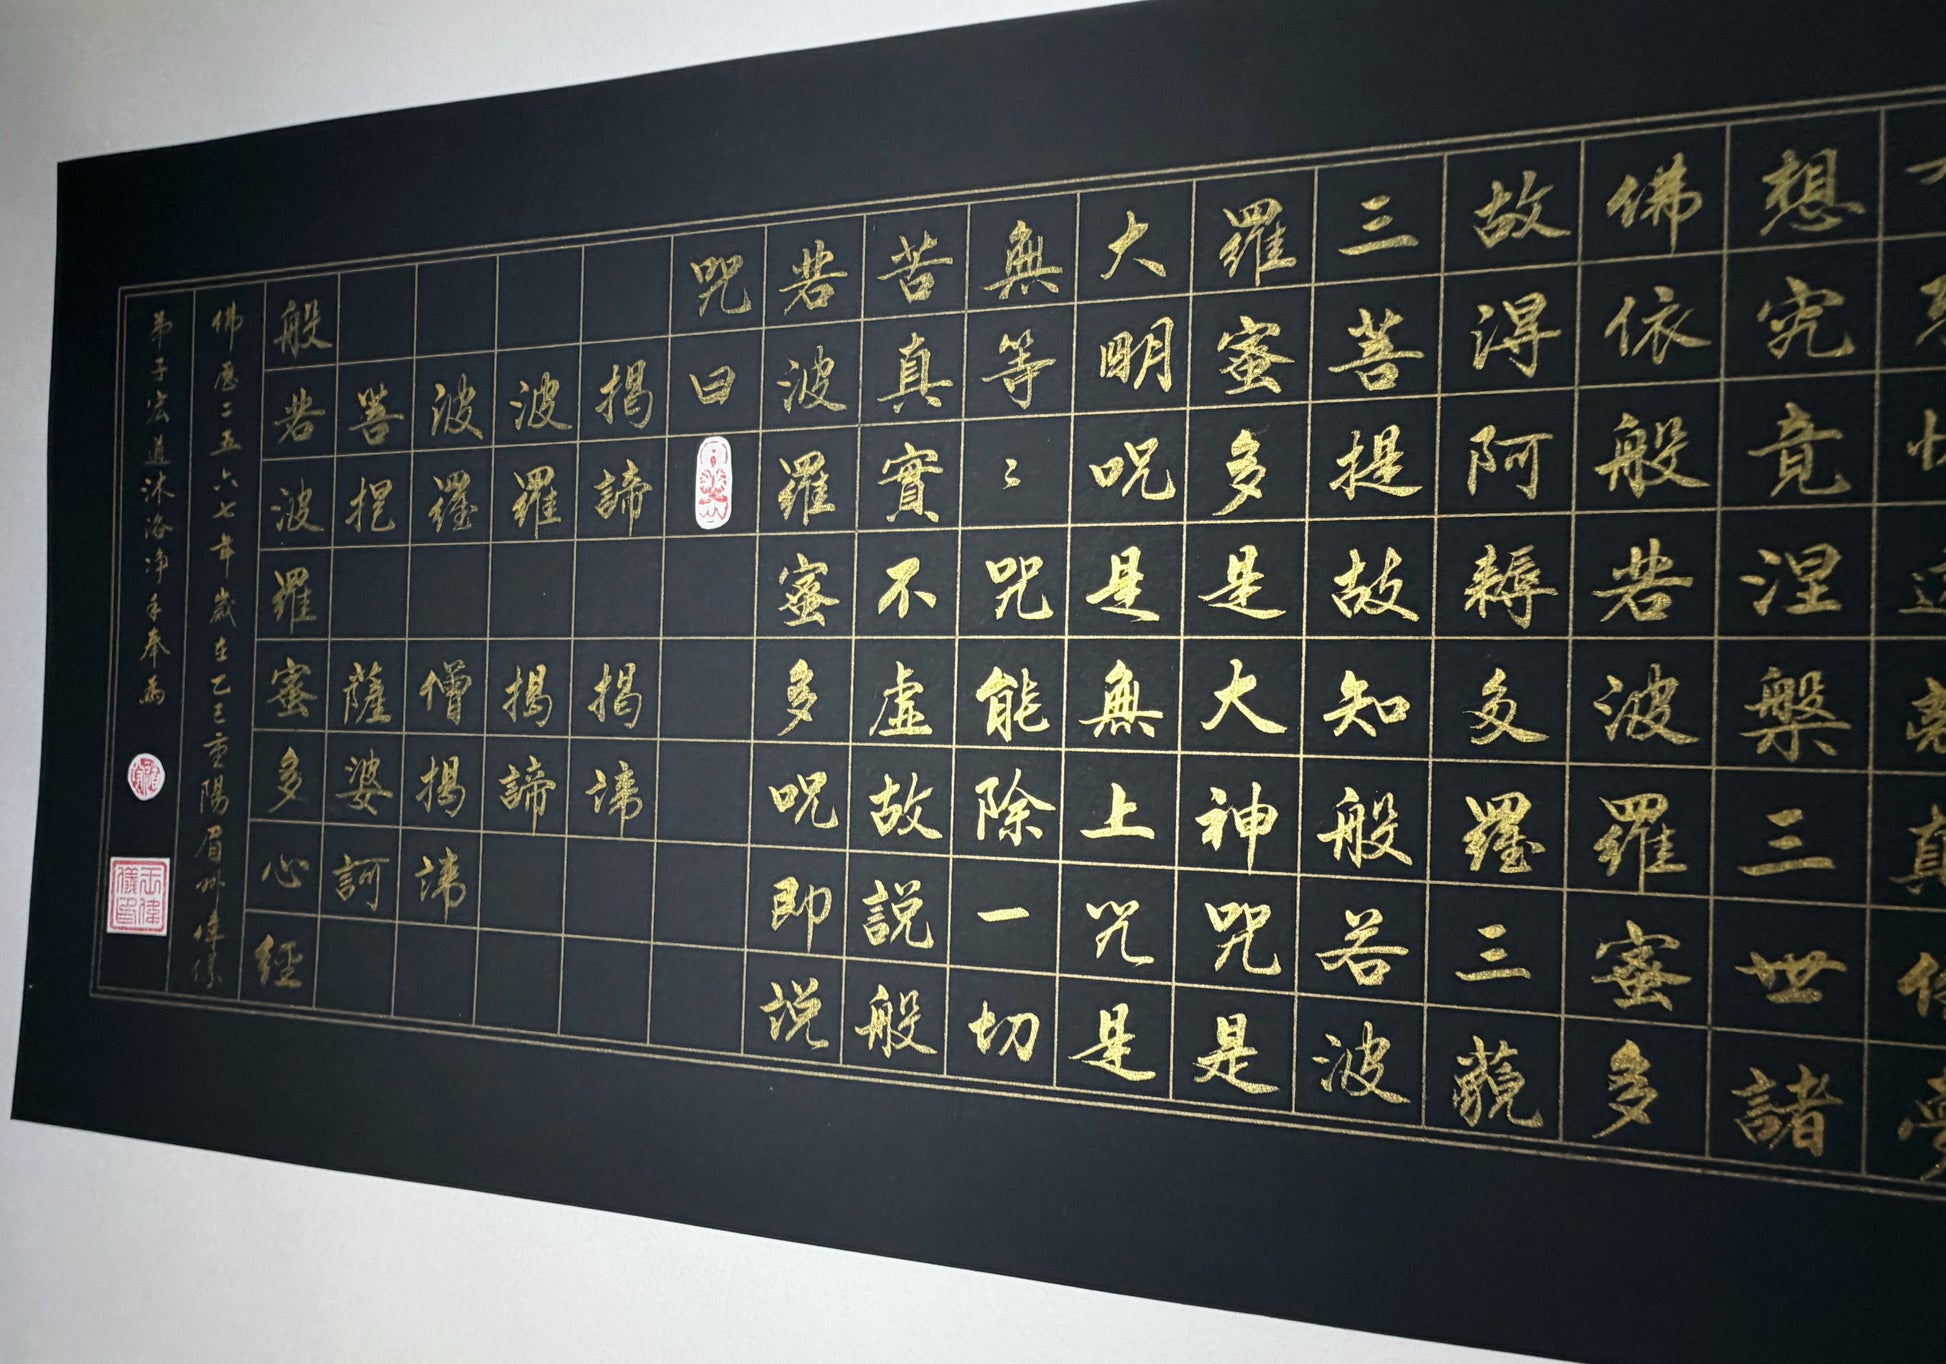 想究竟涅槃三世諸
佛依般若波羅蜜多
故得阿耨多羅三藐
三菩提故知般若波
羅蜜多是大神咒是
大明呪是無上咒是
無等〻咒能除一切
苦真實不虛故說般
若波羅蜜多呪即說
咒曰
揭諦 揭諦
波羅 揭諦
波羅 僧揭諦
菩提 薩婆訶
般若波羅蜜多心經
佛曆二五六七年歲在乙巳重陽眉州偉儀
弟子宏道沐浴净手奉